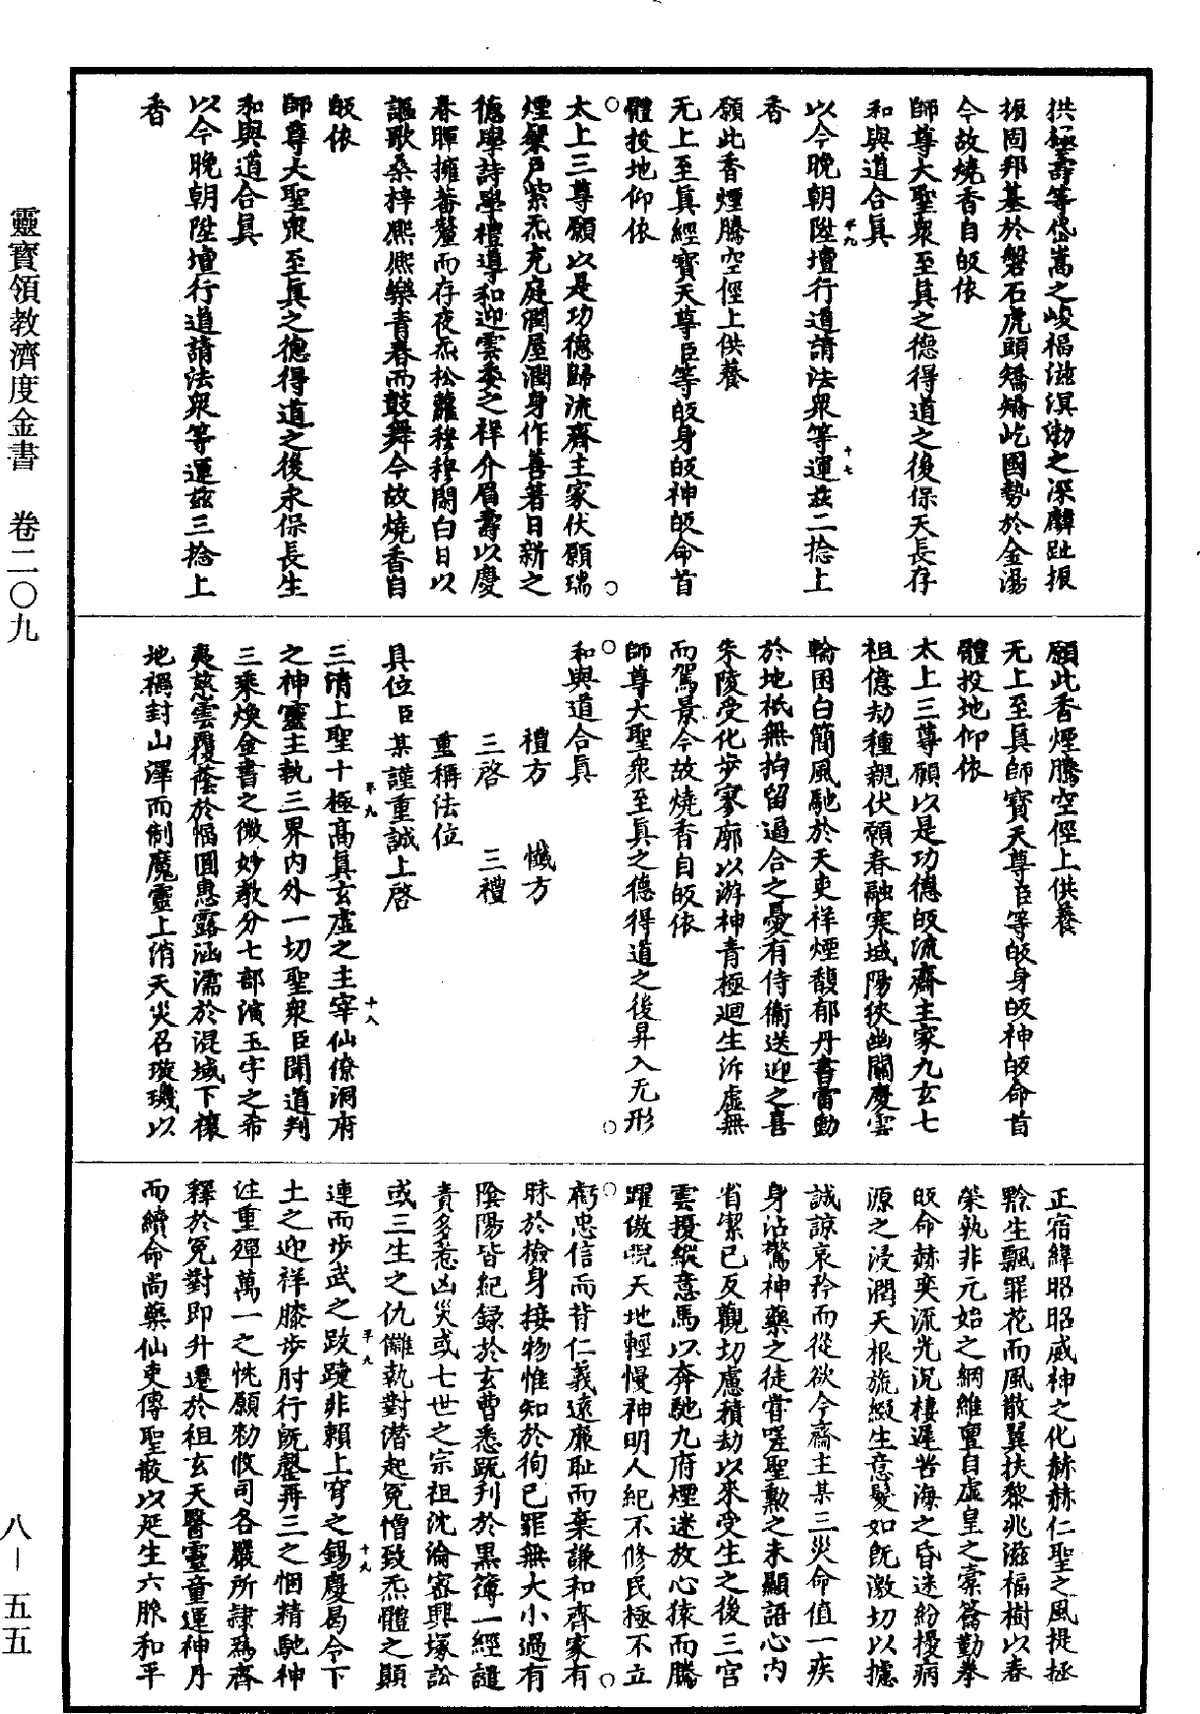 拱極壽等岱嵩之峻福滋溟渤之深麟趾振
振固邦基於磐石虎頭矯矯屹國勢於金湯
今故燒香自皈依
師尊大聖衆至真之德得道之後保天長存
和與道合真
以今晚朝陞壇行道請法衆等運茲二捻上
香
願此香煙騰空徑上供養
无上至真經寶天尊臣等皈身皈神皈命首
體投地仰依
太上三尊願以是功德歸流齋主家伏願瑞
煙縈戶紫炁充庭潤屋潤身作善著日新之
德學詩學禮導和迎雲委之祥介眉壽以慶
春暉擁蕃釐而存夜炁松蘿穆穆閱白日以
謳歌桑梓熙熙樂青春而鼓舞今故燒香自
皈依
師尊大聖衆至真之德得道之後永保長生
和與道合真
以今晚朝陞壇行道請法衆等運茲三捻上
香
願此香煙騰空徑上供養
无上至真師寶天尊臣等皈身皈神皈命首
體投地仰依
太上三尊願以是功德皈流齋主家九玄七
祖億劫種親伏願春融寒域陽狹幽關慶雲
輪囷白簡風馳於天吏祥煙馥郁丹書雷動
於地祇無拘留遏合之憂有侍衞送迎之喜
朱陵受化步寥廓以游神青極迴生泝虛無
而駕景今故燒香自皈依
師尊大聖衆至真之德得道之後昇入无形
和與道合真
禮方 懺方
三啓 三禮
重稱法位
具位臣某謹重誠上啓
三清上聖十極高真玄虛之主宰仙僚洞府
之神靈主執三界內外一切聖衆臣聞道判
三乘煥金書之微妙教分七部演玉字之希
夷慈雲覆蔭於幅圓惠露涵濡於混域下禳
地禍封山澤而制魔靈上消天災召璇璣以
正宿緯昭昭威神之化赫赫仁聖之風提拯
黔生飄罪花而風散翼扶黎兆滋福樹以春
榮孰非元始之網維亶自虛皇之橐籥勤拳
皈命赫奕流光況棲遲苦海之昏迷紛擾病
源之浸潤天根旒綴生意髮如旣激切以攄
誠諒哀矜而從欲今齋主某三災命值一疾
身沾驚神藥之徒嘗嗟聖勲之未顯語心內
省潔己反觀切慮積劫以來受生之後三宮
雲擾縱意馬以奔馳九府煙迷放心猿而騰
躍傲睨天地輕慢神明人紀不修民極不立
虧忠信而背仁義遠廉恥而棄謙和齊家有
昧於檢身接物惟知於徇己罪無大小過有
陰陽皆紀録於玄曹悉䟽列於黑簿一經譴
責多惹凶災或七世之宗祖沈淪密興塚訟
或三生之仇讎執對潜起冤憎致炁體之顛
連而步武之跛躄非賴上穹之錫慶曷令下
土之迎祥膝步肘行旣罄再三之悃精馳神
往重殫萬一之忱願勑攸司各嚴所隷爲齊
釋於冤對即升遷於祖玄天醫靈童運神丹
而續命尚藥仙吏傳聖散以延生六脉和平
平九
十七
平九
十八
平九
十九
靈寶領教濟度金書 卷二〇九
八—五五